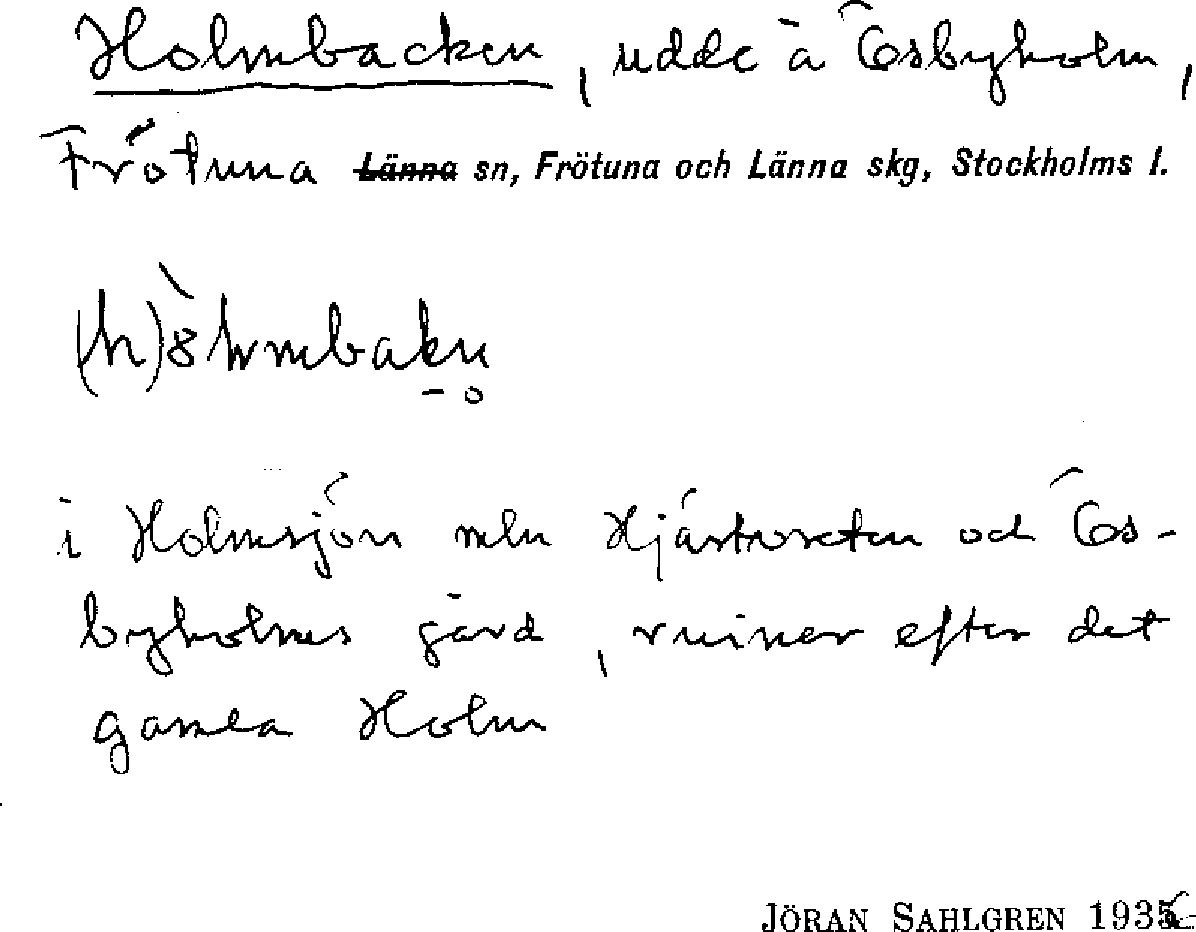 Holmbacken, udde å Ösbyholm,
Frötuna ~~Länna~~ sn, Frötuna och Länna skg, Stockholms l.
i Holmsjön mln och Ös-
byholms gård, ruiner efter det
gamla Holm
JÖRAN SAHLGREN 1936